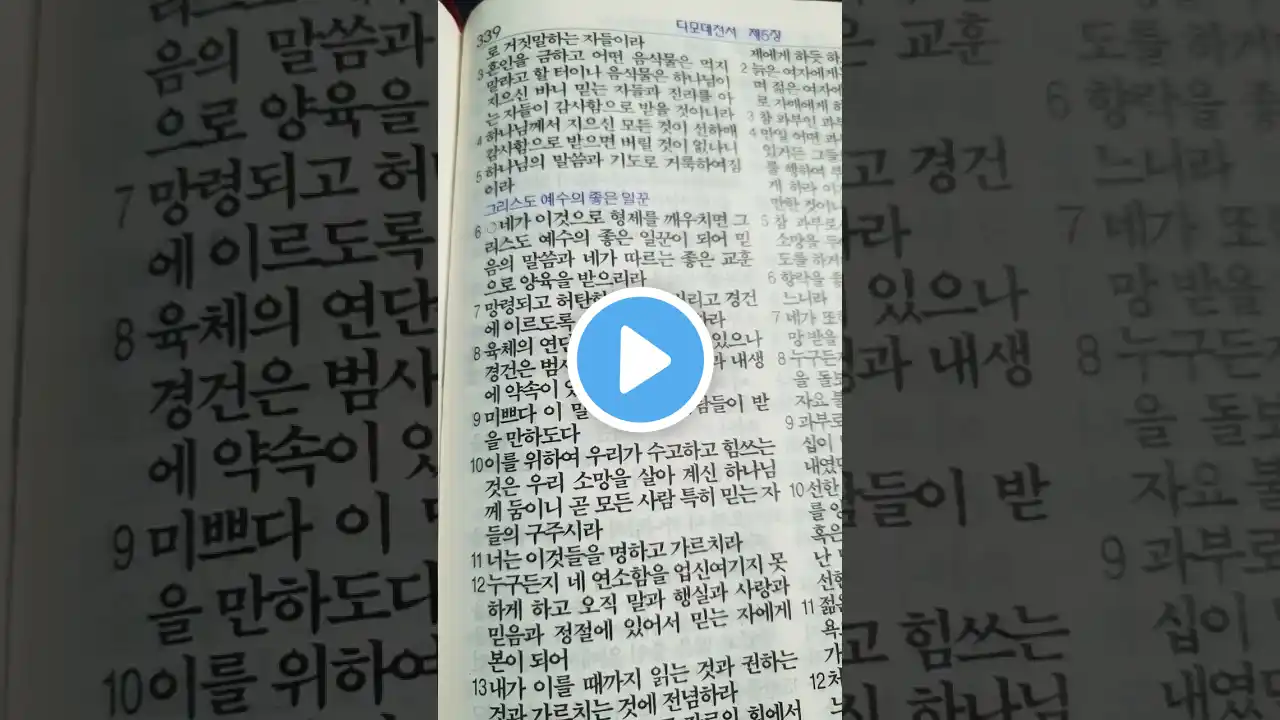 339
디모데전서 제5장
로 거짓말하는 자들이라
3 혼인을 금하고 어떤 음식물은 먹지
말라고 할 터이나 음식물은 하나님이
지으신 바니 믿는 자들과 진리를 아
는 자들이 감사함으로 받을 것이니라
4 하나님께서 지으신 모든 것이 선하매
감사함으로 받으면 버릴 것이 없나니
5 하나님의 말씀과 기도로 거룩하여짐
이라
그리스도 예수의 좋은 일꾼
6 ○네가 이것으로 형제를 깨우치면 그
리스도 예수의 좋은 일꾼이 되어 믿
음의 말씀과 네가 따르는 좋은 교훈
으로 양육을 받으리라
7 망령되고 허탄 버리고 경건
에 이르도록 라
8 육체의 연단 있으나
경건은 범사 내생
에 약속이 있
9 미쁘다 이 말 사람들이 받
을 만하도다
10 이를 위하여 우리가 수고하고 힘쓰는
것은 우리 소망을 살아 계신 하나님
께 둠이니 곧 모든 사람 특히 믿는 자
들의 구주시라
11 너는 이것들을 명하고 가르치라
12 누구든지 네 연소함을 업신여기지 못
하게 하고 오직 말과 행실과 사랑과
믿음과 정절에 있어서 믿는 자에게
본이 되어
13 내가 이를 때까지 읽는 것과 권하는
것과 가르치는 것에 전념하라
회에서
제에게 하듯 하
2 늙은 여자에게
며 젊은 여자에
로 자매에게 하
3 참 과부인 과부
4 만일 어떤 과
있거든 그들
를 행하여 부
게 하라 이
만한 것이니
5 참 과부로
소망을 두
도를 하거
6 향락을 좋
느니라
7 네가 또한
망 받을
8 누구든지
을 돌보
자요 불
9 과부로
십이
내었던
10 선한
를 양
혹은
난
선한
11 젊은
욕
가
12 처